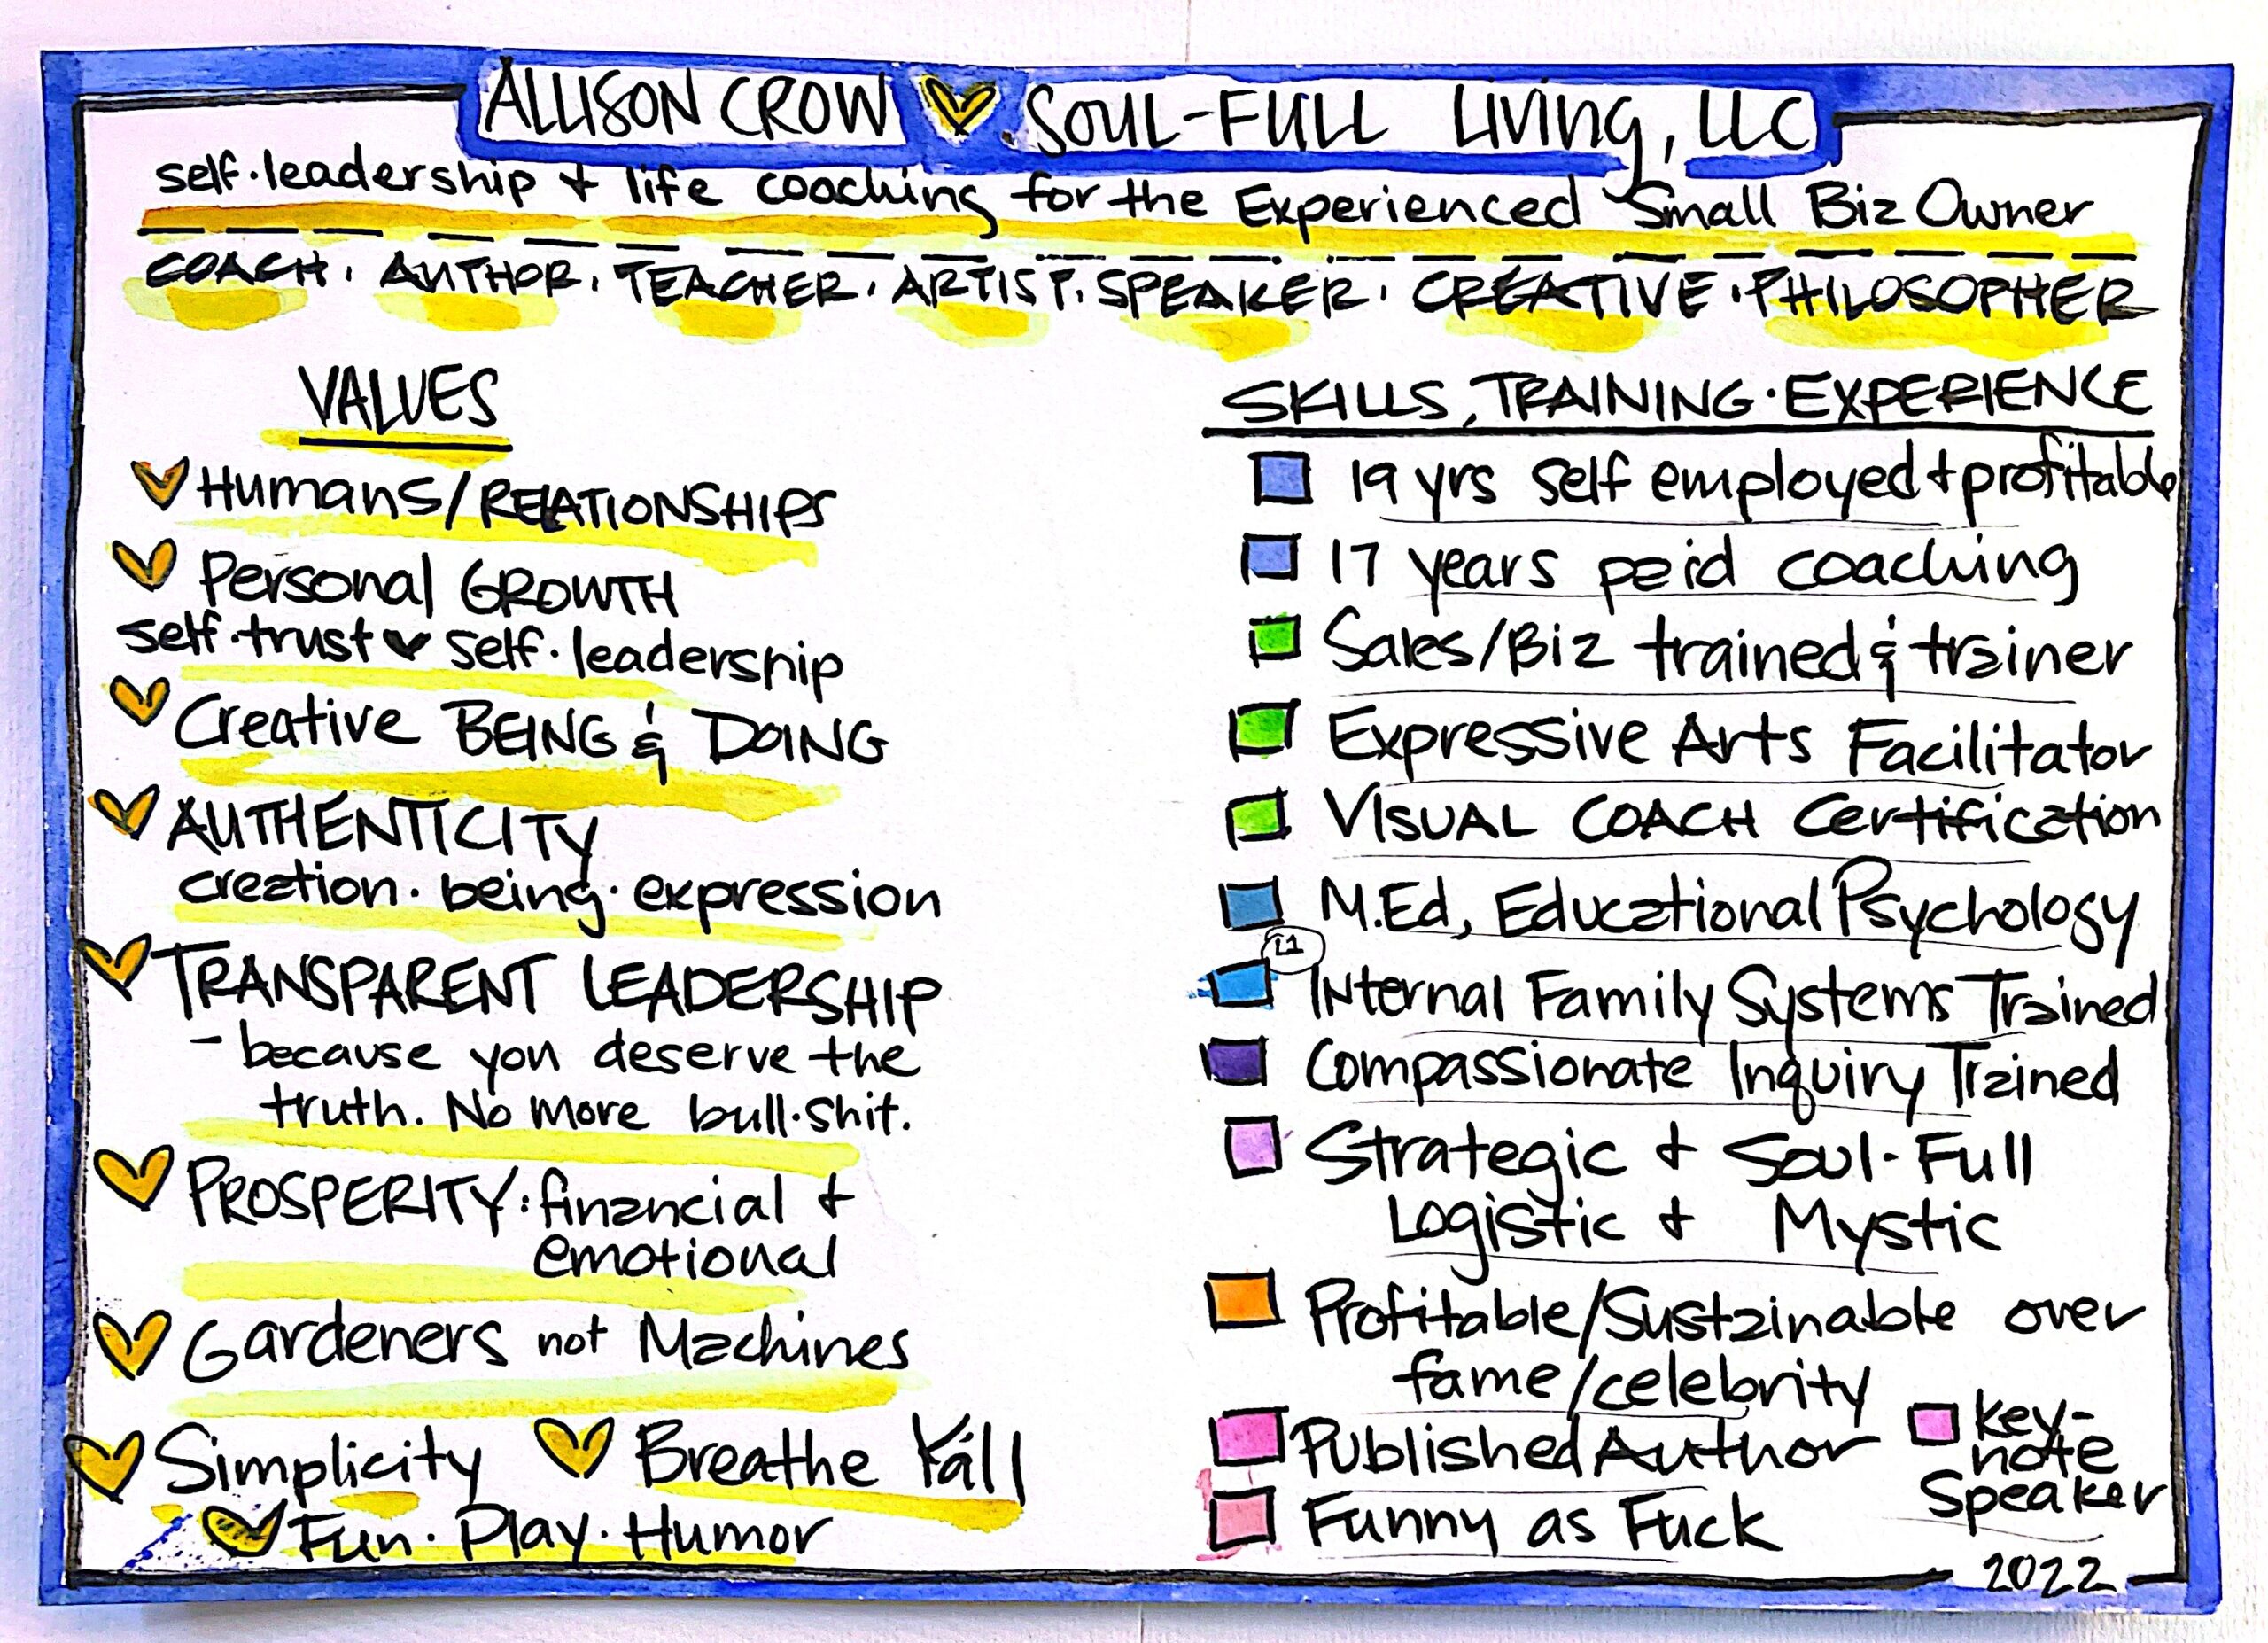 ALLISON CROW SOUL-FULL LIVING, LLC
self·leadership + life coaching for the Experienced Small Biz Owner
COACH · AUTHOR · TEACHER · ARTIST · SPEAKER · CREATIVE · PHILOSOPHER
VALUES
Humans/RELATIONSHIPS
Personal GROWTH
self·trust ♥ self·leadership
Creative BEING & DOING
AUTHENTICITY
creation·being·expression
TRANSPARENT LEADERSHIP
- because you deserve the
truth. No more bull·shit.
PROSPERITY: financial +
emotional
Gardeners not Machines
Simplicity Breathe Y'all
Fun·Play·Humor
SKILLS, TRAINING·EXPERIENCE
19 yrs self employed + profitable
17 years paid coaching
Sales/Biz trained & trainer
Expressive Arts Facilitator
VISUAL COACH Certification
M.Ed, Educational Psychology
L1
Internal Family Systems Trained
Compassionate Inquiry Trained
Strategic + Soul·Full
Logistic + Mystic
Profitable/Sustainable over
fame/celebrity
Published Author
key-
note
Speaker
Funny as Fuck
2022